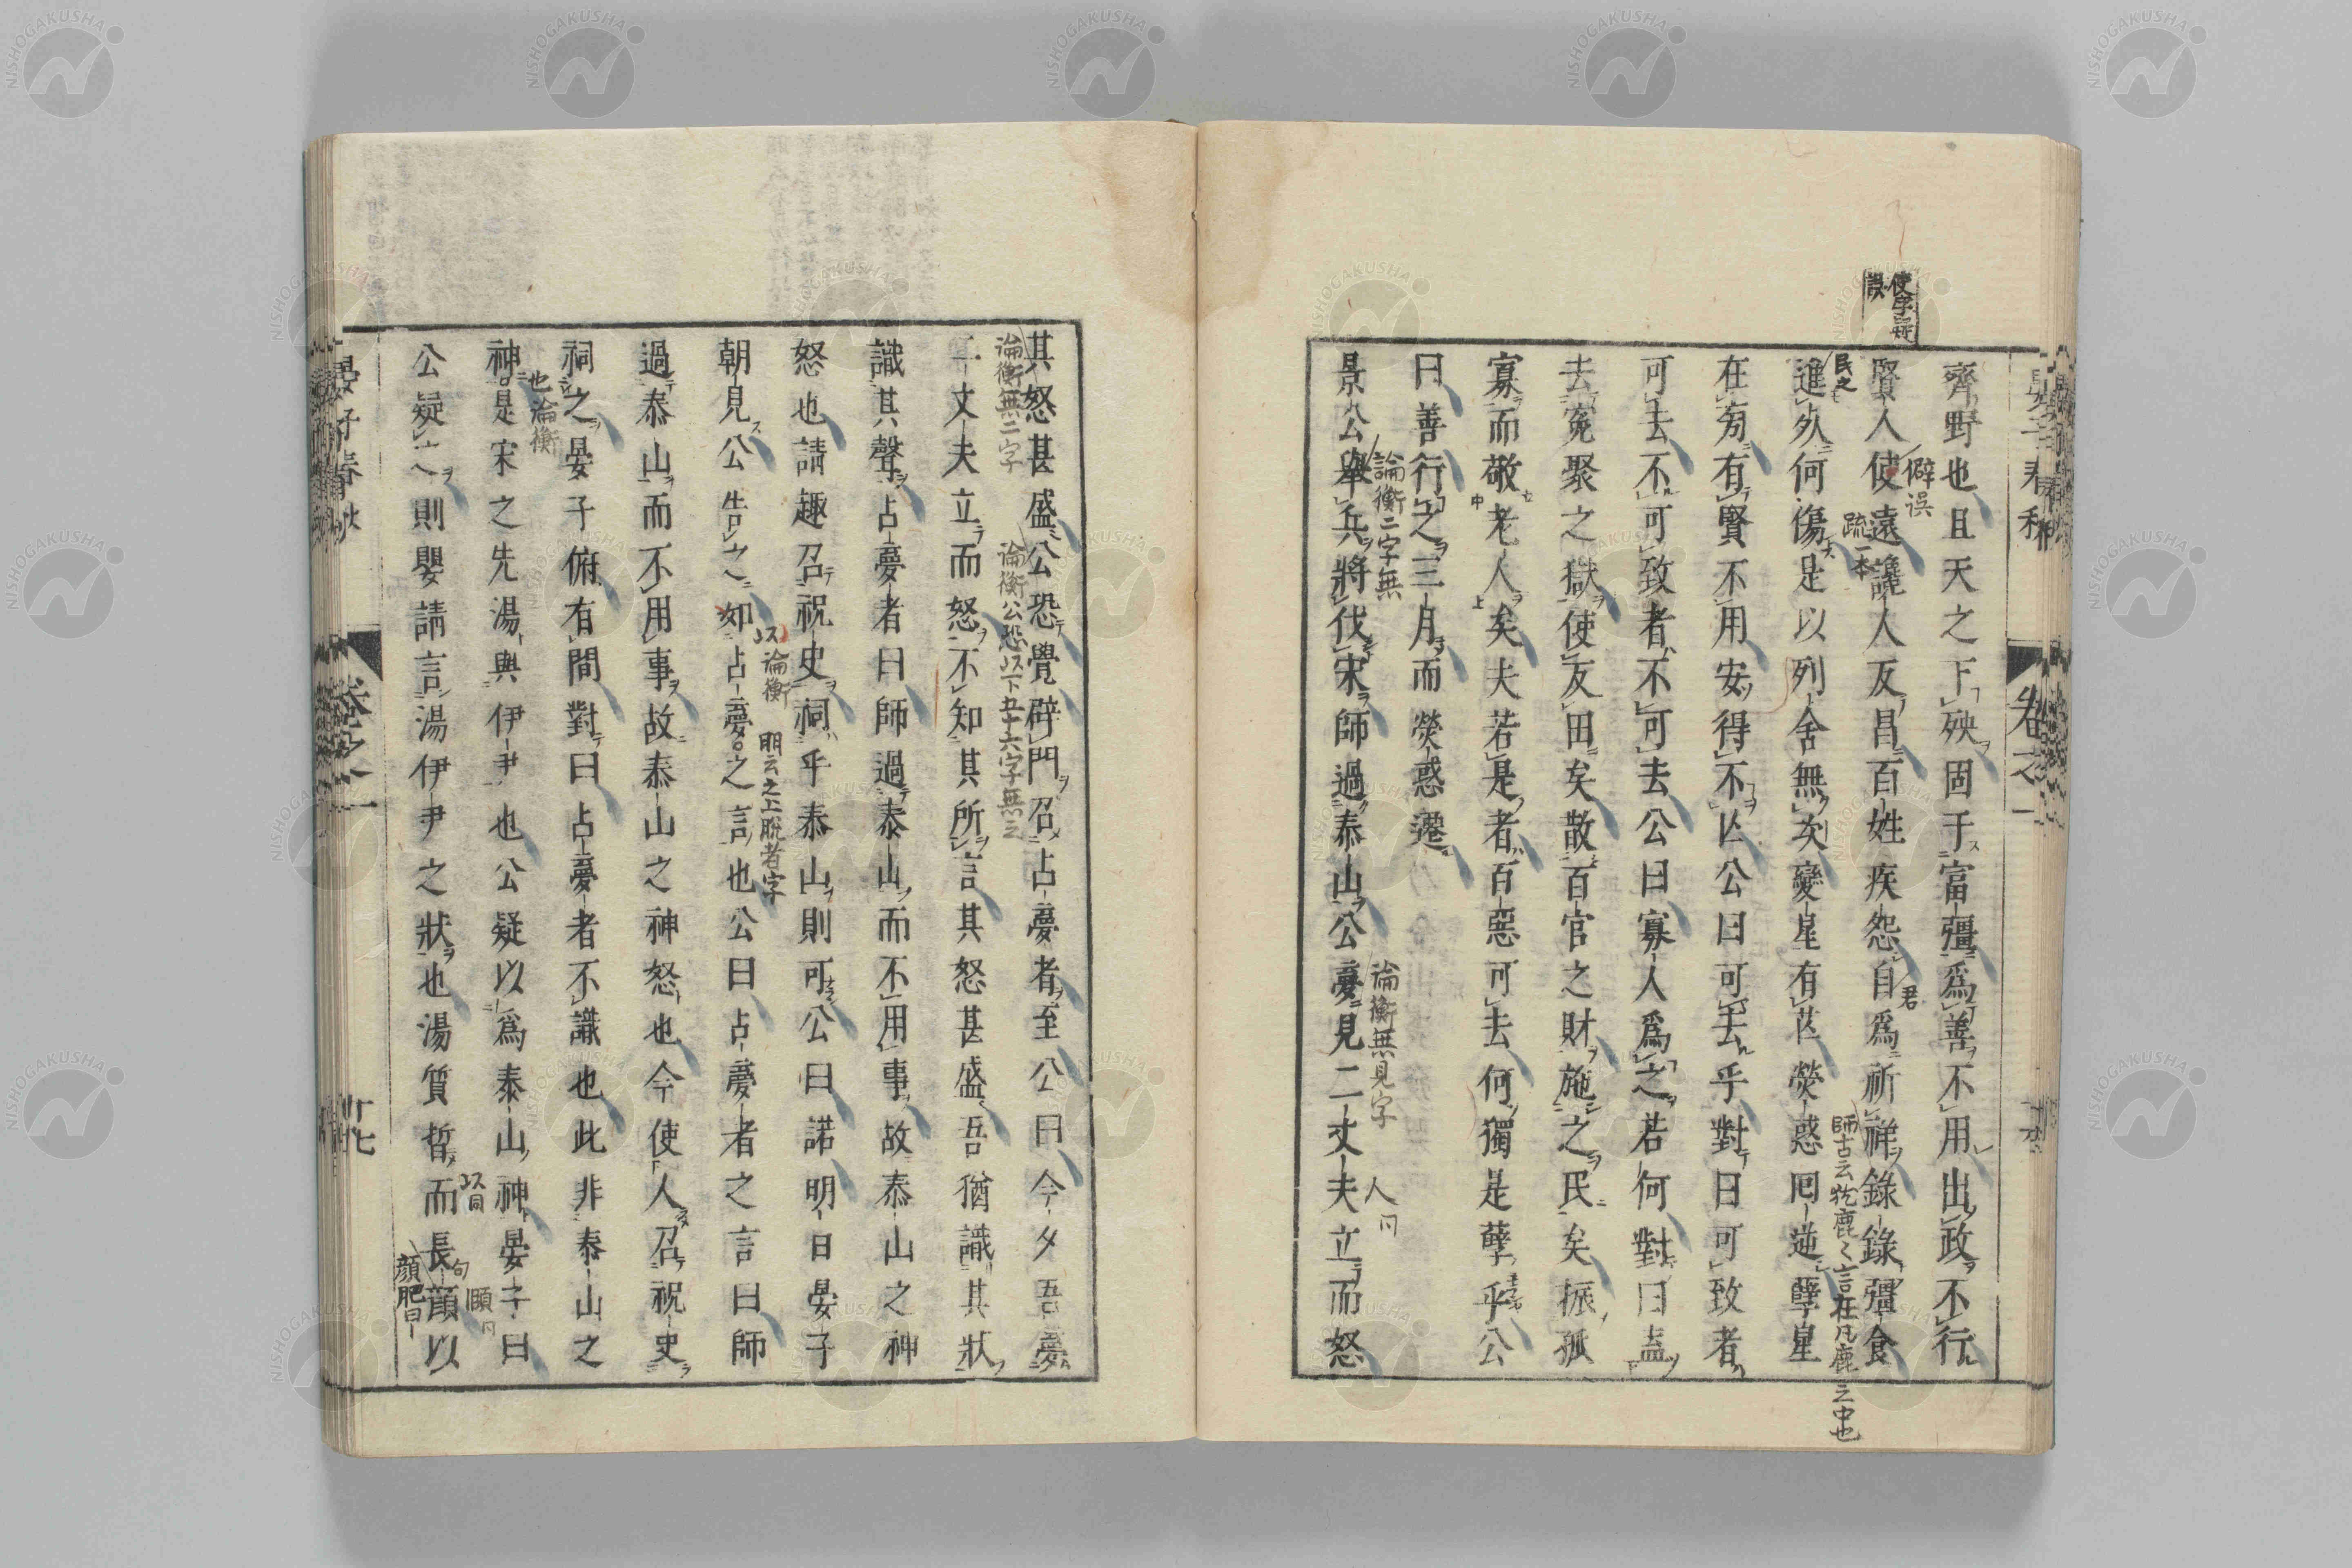 齊野也且天之下殃固于富彊爲善不用出政不行
賢人使遠讒人反昌百姓疾怨自爲祈祥錄錄彊食
進死何傷是以列舍無次變星有芒熒惑囘逆孽星
在旁有賢不用安得不亡公曰可去乎對曰可致者
可去不可致者不可去公曰寡人爲之若何對曰盍
去寃聚之獄使反田矣散百官之財施之民矣振孤
寡而敬老人矣夫若是者百惡可去何獨是孽乎公
曰善行之三月而熒惑遷
景公舉兵將伐宋師過泰山公夢見二丈夫立而怒
使字疑誤
民之
僻誤
疏一本
君
論衡二字無
論衡無見字
人冂
卷之一
其怒甚盛公恐覺辟門召占夢者至公曰今夕吾夢
二丈夫立而怒不知其所言其怒甚盛吾猶識其狀
識其聲占夢者曰師過泰山而不用事故泰山之神
怒也請趣召祝史祠乎泰山則可公曰諾明日晏子
朝見公告之如占夢之言也公曰占夢者之言曰師
過泰山而不用事故泰山之神怒也今使人召祝史
祠之晏子俯有間對曰占夢者不識也此非泰山之
神是宋之先湯與伊尹也公疑以爲泰山神晏子曰
公疑之則嬰請言湯伊尹之狀也湯質晳而長顔以
論衡無二字
論衡公恐以下五十六字無之
以論衡
明云之上脫者字
也論衡
晏子春秋
卷之一
廿七